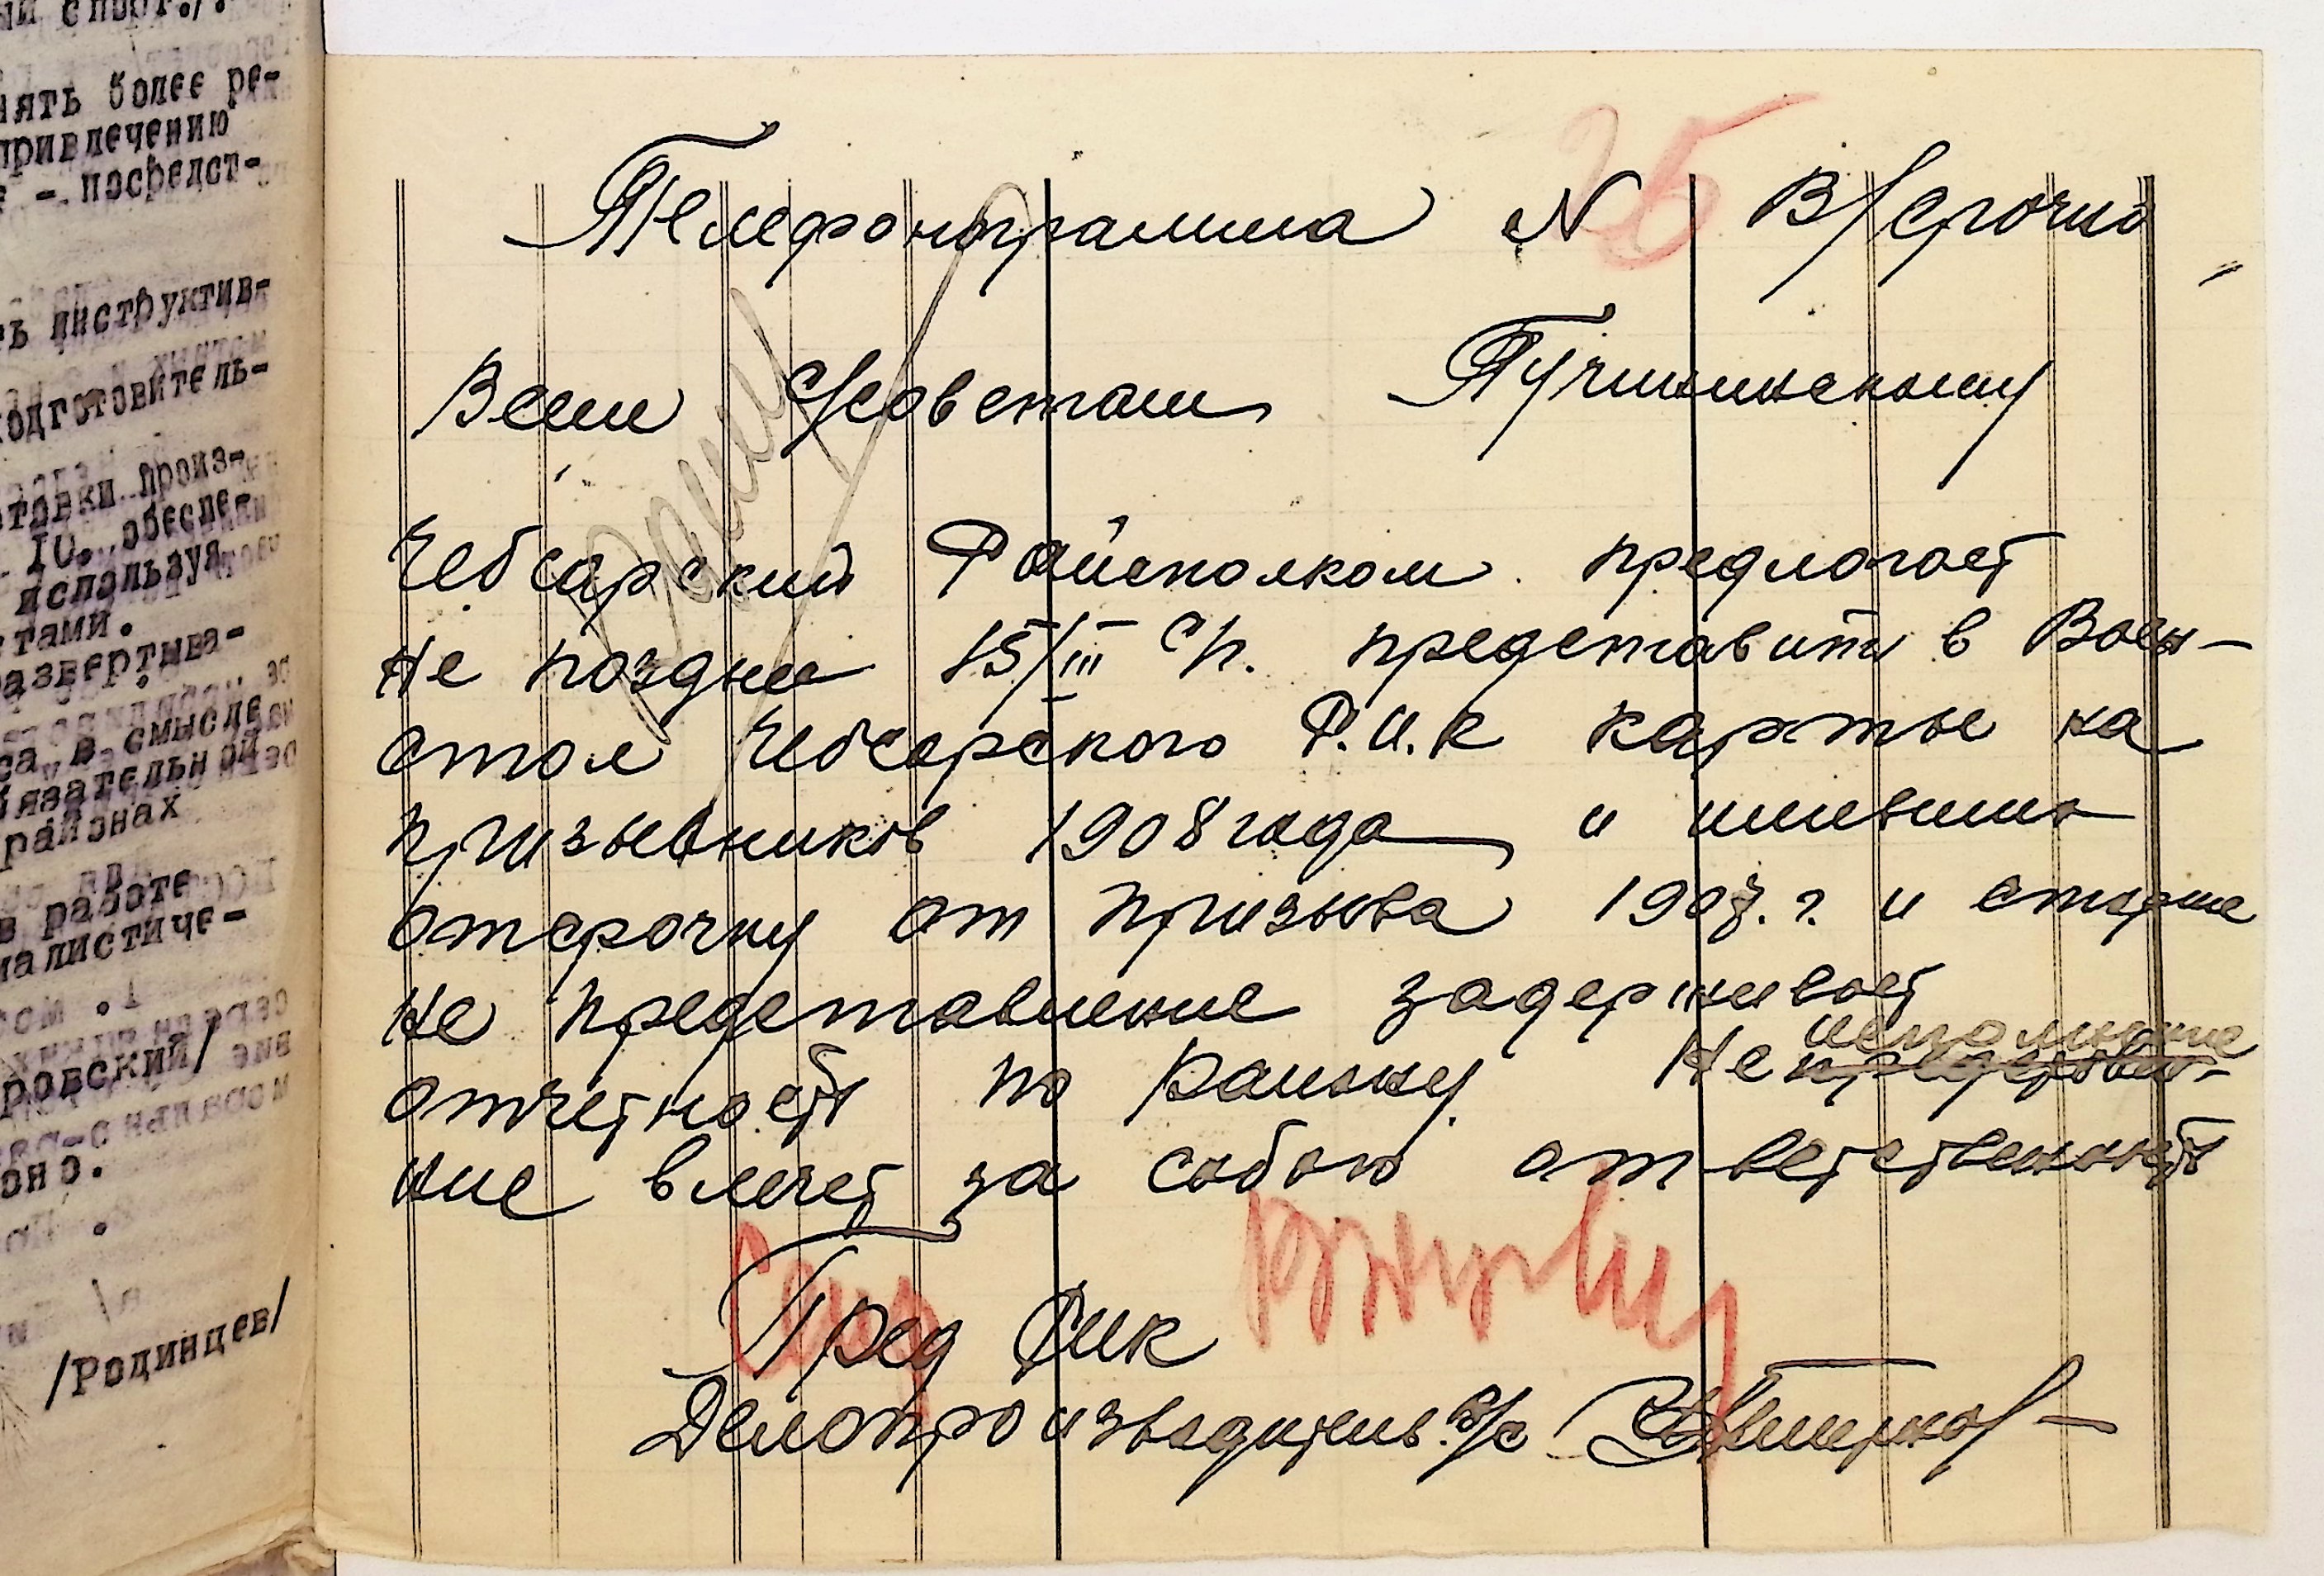 ять более ре-
привлечению
- посредст-
ь инструктив-
одготовитель-
товки произ-
10. обеспе
используя
тами.
азвертыва-
са в смысле
язательной
районах
в работе
иалистиче-
ровский/
оно.
/Родинцев/
Телефонограмма № В/срочно
25
Всем С/советам Пучининскому
Чебсарский Райисполком предлогает
не поздние 15/III с/г. представить в Воен-
стол Чебсарского Р.И.К карты на
призывников 1908 года и имевших
отсрочку от призыва 1907. г. и старше
не представление задерживает
отчетность по району Не исполнение
ние влечет за собою ответственность
Пред Рик
Делопроизводитель в/с